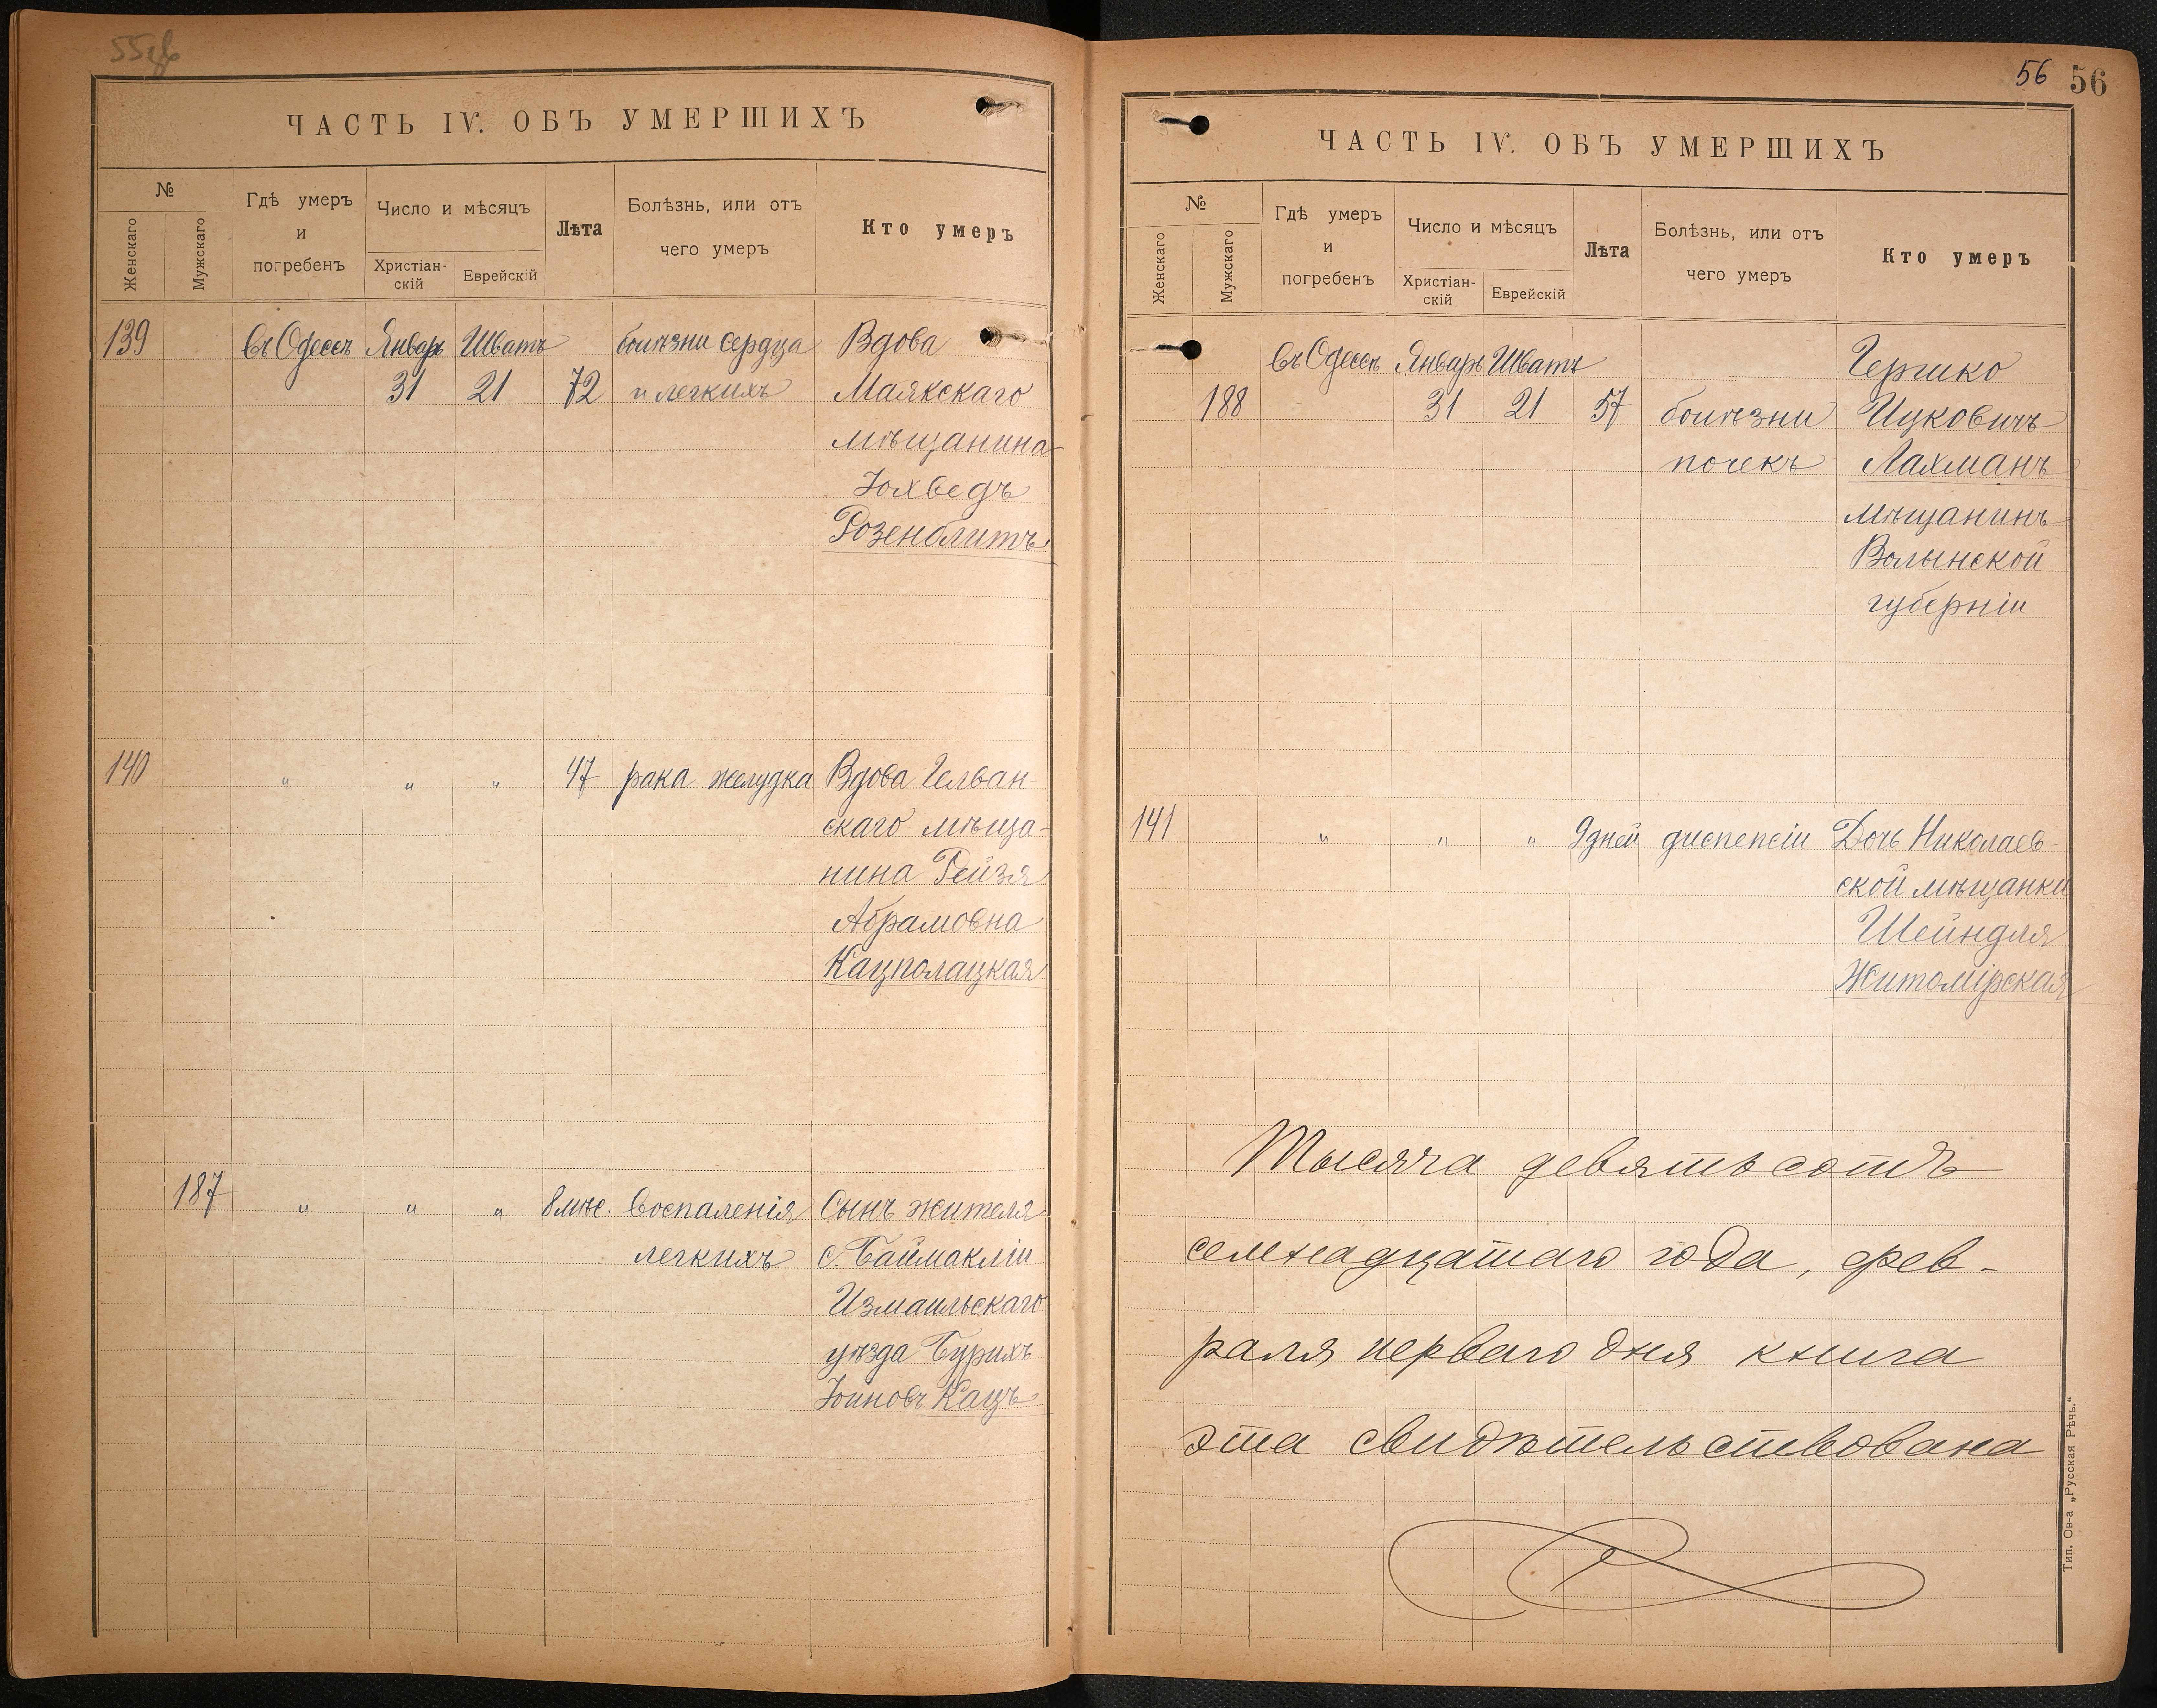 55об
ЧАСТЬ IV. ОБЪ УМЕРШИХЪ
№
Женскаго
Мужскаго
Гдѣ умеръ
и
погребенъ
Число и мѣсяцъ
Христіан-
скій
Еврейскій
Лѣта
Болѣзнь, или отъ
чего умеръ
Кто умеръ
139 въ Одессѣ Январь Шватъ болѣзни сердца Вдова
31 21 72 и легкихъ Маякскаго
мѣщанина
Іохведъ
Розенблитъ
140 " " " 47 рака желудка Вдова Гелван
скаго мѣща-
нина Рейзя
Абрамовна
Кацполацкая
187 " " " 8 мѣс. воспаленія Сынъ жителя
легкихъ с. Баймакліи
Измаильскаго
уѣзда Бурихъ
Іоиновъ Кацъ
56 56
ЧАСТЬ IV. ОБЪ УМЕРШИХЪ
№
Женскаго
Мужскаго
Гдѣ умеръ
и
погребенъ
Число и мѣсяцъ
Христіан-
скій
Еврейскій
Лѣта
Болѣзнь, или отъ
чего умеръ
Кто умеръ
въ Одессѣ Январь Шватъ Гершко
188 31 21 57 болѣзни Ицковичъ
почекъ Лахманъ
мѣщанинъ
Волынской
губерніи
141 " " " 9 дней диспепсіи Дочь Николаев-
ской мѣщанки
Шейндля
Житомірская
Тысяча девятьсотъ
семнадцатаго года, фев-
раля перваго дня книга
эта свидѣтельствована
Тип. Ов-а „Русская Рѣчь."